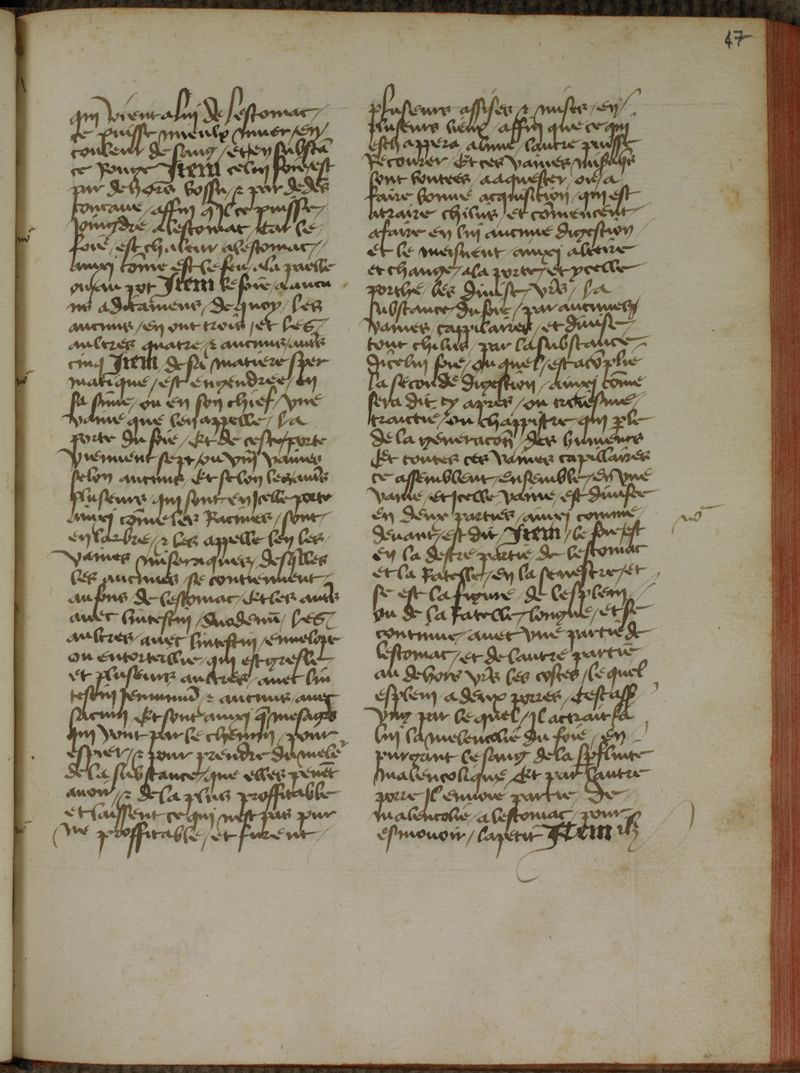 47
qui vient a lui de lestomac /
ce puisse mieulx muer / en /
couleur de sang / et en substā
ce Rouge Item celui foie / est
par dehors bossu / ⁊ par dedēs
concaue / affin q̄ il ce puisse /
ioingdre a lestomac / Car le /
foie / est chaleur a lestomac //
ainxi cōme est le feu / a la paelle
ou au pot Item le foie / a aucu
ns aditamens / de quoy / les
aucuns / en ont trois / et les /
aultres quatre / ⁊ aucuns / aut̄s
cinq Item de sa matiere sper
matique / est engendree / en
sa sime / ou en son chief / vne
vaine que len appelle / la
porte du foie / Et de ceste / porte
viennent sept / ou viij vaines
selon aucuns Et selon les aut̄s
pluseurs / qui sont en Icelle porte
ainxi cōme les Racines / sont /
en larbre / ⁊ les appelle len les /
vaines miseraiques / desq̄lles
les aucunes / se contiennent /
au fons de lestomac / Et les aut̄s
auec lintestin / duodenū / les /
aultres / auec lintestin / enuelope
ou entorteillie / qui est gresle /
et pluseurs aultres / auec lin
testin Ieiunium̄ / ⁊ aucuns auec
saccum Et sont ainxi q̄ mesages
qui vont par le chemin / pour
espier / ⁊ pour prendre du miele
de la substance / que elles peuēt
auoir / ⁊ de la plus proffitable
et laissent ce qui nest pas pur
ne proffitable / et furent /
pluseurs assises ⁊ mises / en /
pluseurs lieux / affin que ce qui
eschappera a lune / lautre puisse
Recourer Et ces vaines / misaiq̄s
sont boutees / a aquester / ou a
faire bonne acquisition / qui est
atraire chilus / et cōmencent
a faire en lui aucune digestion /
et le meisnent ainxi altere
et change / a la porte / et ycelle
porthe / les diuise v̄s / la
substance du foie / par aucunes
vaines cappilaires / et diuise /
tout chilus / par la substance /
dicelui foie / ou quel / est acōplie
la seconde digestion / ainxi cōme
sera dit cy apres / ou troisiesme /
traictie / ou chappistre qui p̄le
de la generacōn / des humeurs
Et toutes ces vaines capillaires
ce assemblent / ensemble / en vne
vaine / et icelle vaine / est diuisee
en deux parties / ainxi comme /
deuant / est dit / Item / le foie / est
en la destre partie de lestomac
et la Ratelle / en la senestre / et
se est la figure de lesplein /
ou de la ratelle / longue / et se
contenue / auec vne partie de
lestomac / et de lautre partie
au dehors v̄s les costes / lequel
esplein a deux porres / Cest ass̄
vng par lequel / il actrait / a
lui la melencolie du foie / en /
purgant le sang de la sp̄fluite
malencolique / Et par lautre
porre Il enuoie partie / De /
malencolie / a lestomac / pour
esmouoir / lapetit Item ilz